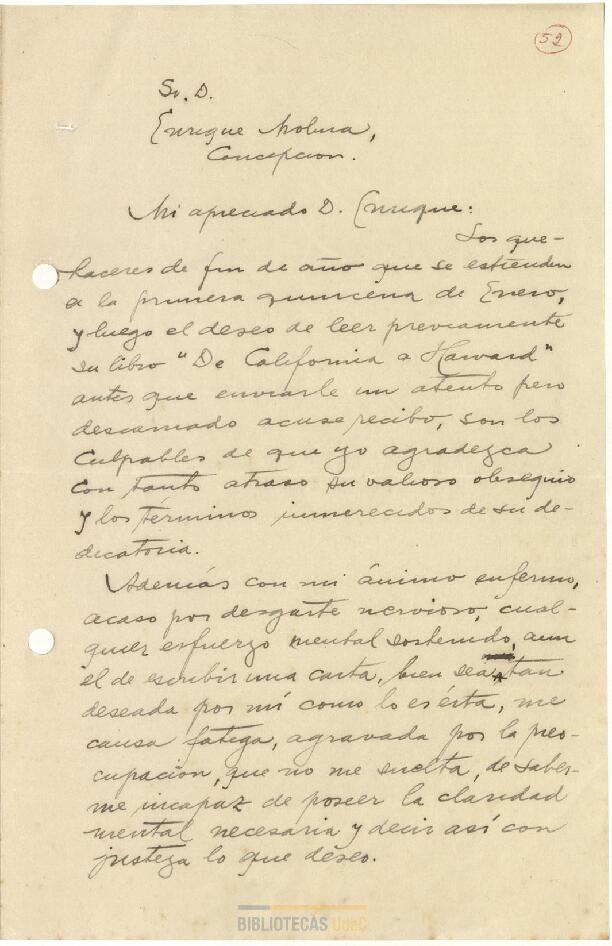 52
Sr. D.
Enrique Molina,
Concepcion.
Mi apreciado D. Enrique:
Los que-
haceres de fin de año que se estienden
a la primera quincena de Enero,
y luego el deseo de leer previamente
su libro "De California a Harvard"
antes que enviarle un atento pero
descarnado acuse recibo, son los
culpables de que yo agradezca
con tanto atraso su valioso obsequio
y los términos inmerecidos de su de-
dicatoria.
Además con mi ánimo enfermo,
acaso por desgaste nervioso, cual-
quier esfuerzo mental sostenido, aun
el de escribir una carta, bien sea tan
deseada por mí como lo es ésta, me
causa fatiga, agravada por la preo-
cupación, que no me suelta, de saber-
me incapaz de poseer la claridad
mental necesaria y decir así con
justeza lo que deseo.
BIBLIOTECAS UdeC